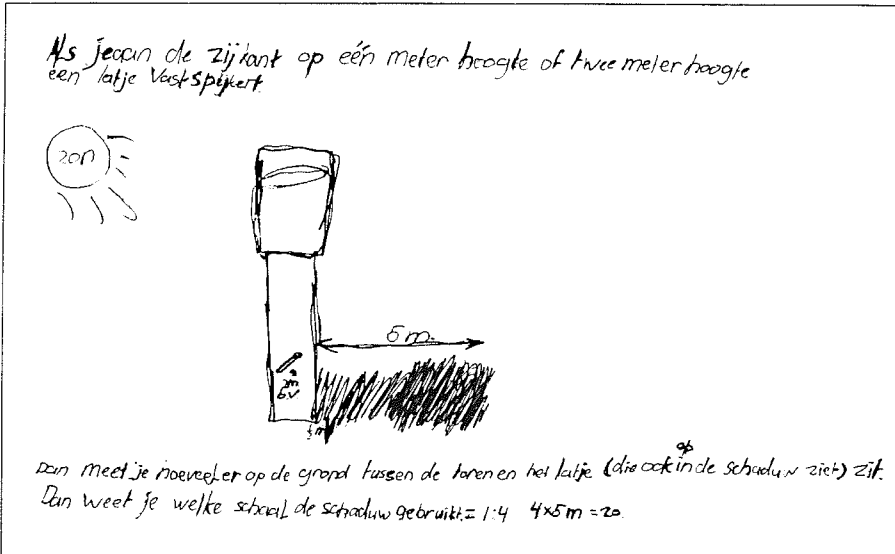 Als je aan de zijkant op één meter hoogte of twee meter hoogte
een latje vastspijkert.
zon
5 m.
Dan meet je hoeveel er op de grond tussen de toren en het latje (die ook op in de schaduw ziet) zit.
Dan weet je welke schaal de schaduw gebruikt = 1:4 4x5m = 20.